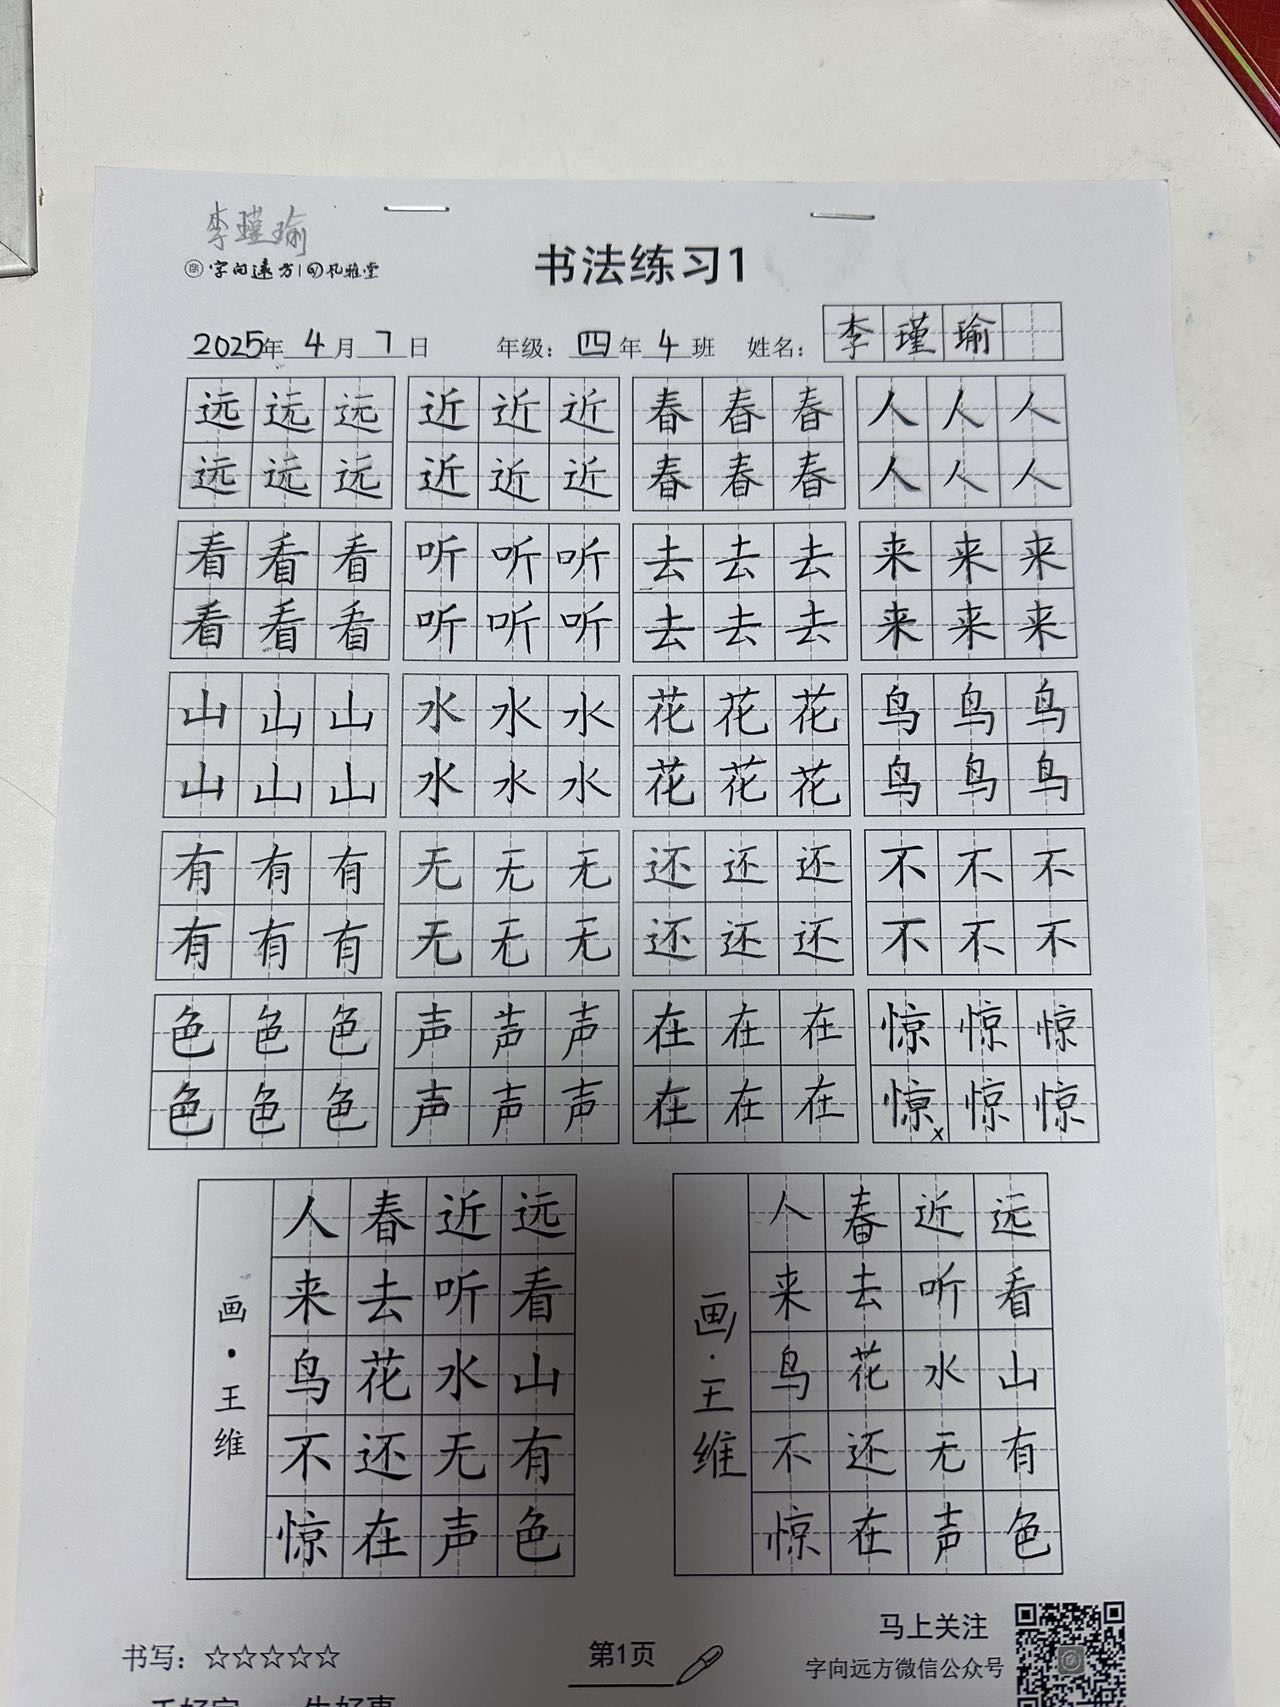 李瑾瑜
字向远方 风雅堂
书法练习1
2025年 4 月 7 日 年级：四年 4 班 姓名：李瑾瑜
远远远 近近近 春春春 人人人
远远远 近近近 春春春 人人人
看看看 听听听 去去去 来来来
看看看 听听听 去去去 来来来
山山山 水水水 花花花 鸟鸟鸟
山山山 水水水 花花花 鸟鸟鸟
有有有 无无无 还还还 不不不
有有有 无无无 还还还 不不不
色色色 声声声 在在在 惊惊惊
色色色 声声声 在在在 惊惊惊
远看山有色
近听水无声
春去花还在
人来鸟不惊
画·王维
远看山有色
近听水无声
春去花还在
人来鸟不惊
画·王维
书写：☆☆☆☆☆
第1页
马上关注
字向远方微信公众号